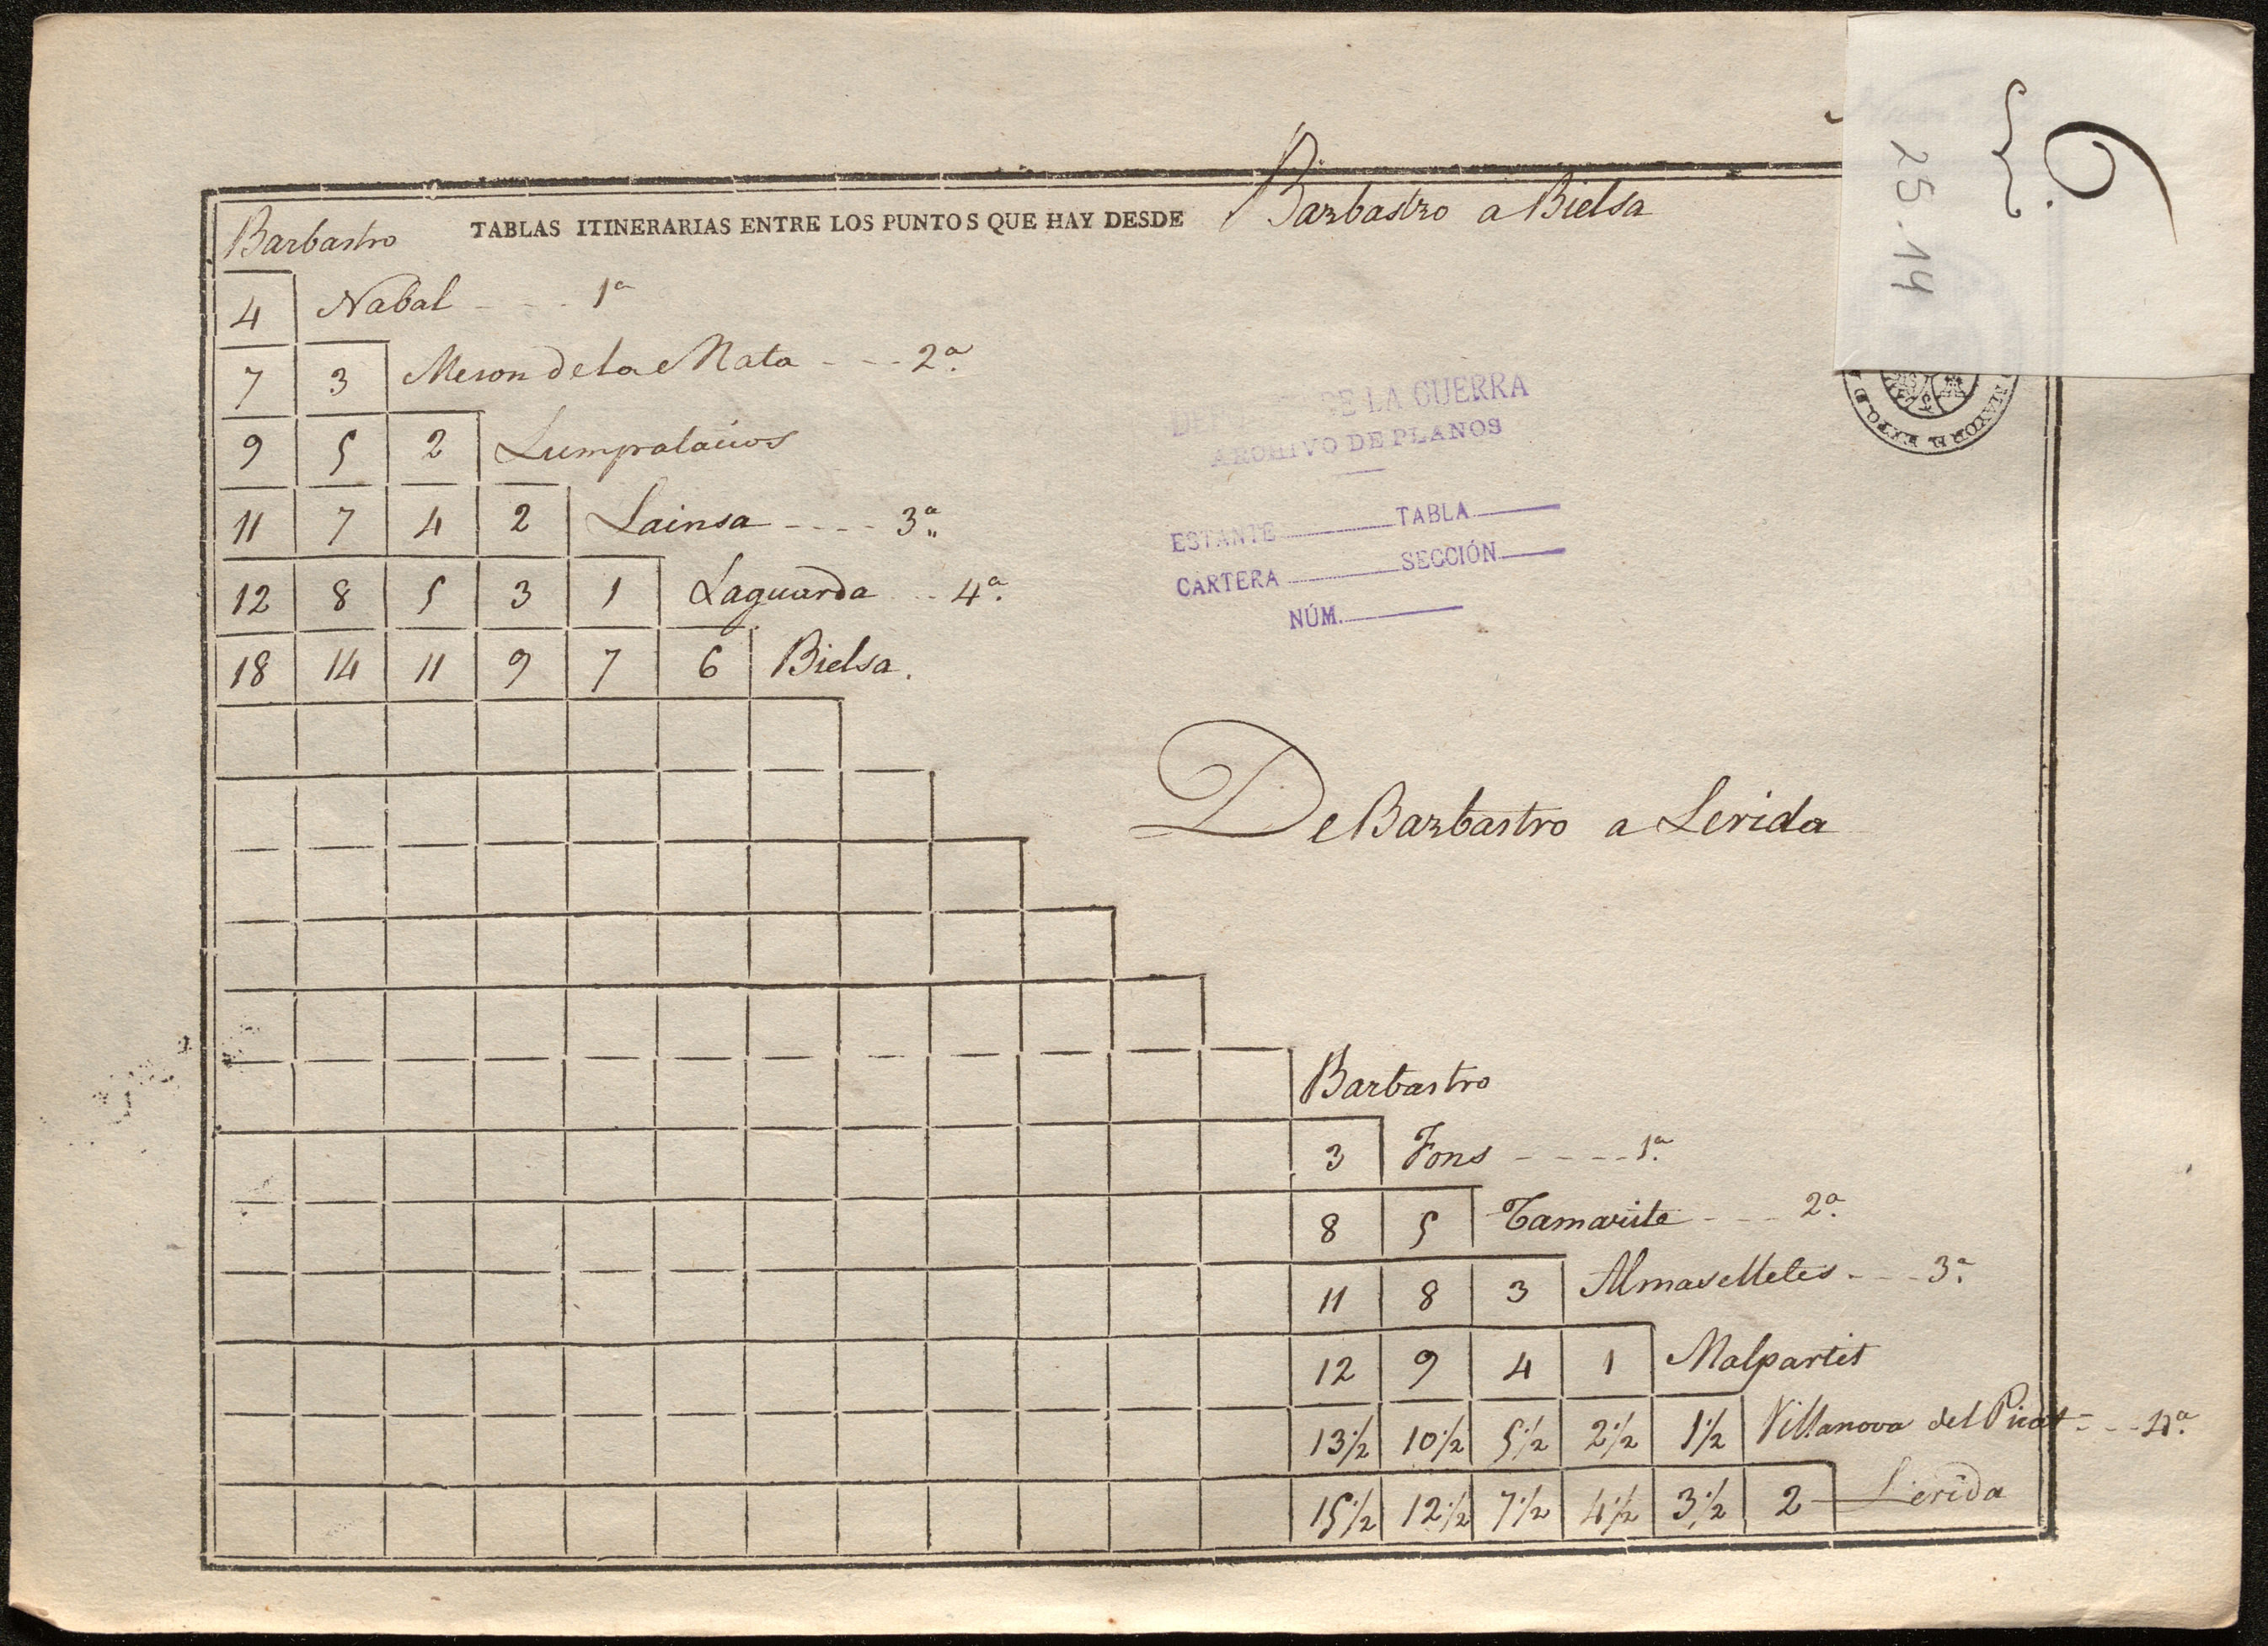 6
25.14
TABLAS ITINERARIAS ENTRE LOS PUNTOS QUE HAY DESDE Barbastro a Bielsa
Barbastro
4 Nabal - - - 1ª
7 3 Meson de la Mata - - - 2ª
9 5 2 Lumpralaiios
11 7 4 2 Lainsa - - - - 3ª
12 8 5 3 1 Laguarda - - 4ª
18 14 11 9 7 6 Bielsa.
DE LA GUERRA
ARCHIVO DE PLANOS
ESTANTE TABLA
CARTERA SECCIÓN
NÚM.
MAYOR
De Barbastro a Lerida
Barbastro
3 Fons - - - - - 1ª
8 5 Tamarite - - - 2ª
11 8 3 Almaselleles - - - 3ª
12 9 4 1 Malpartit
13½ 10½ 5½ 2½ 1½ Villanova del Picat - - - 4ª
15½ 12½ 7½ 4½ 3½ 2 Lerida